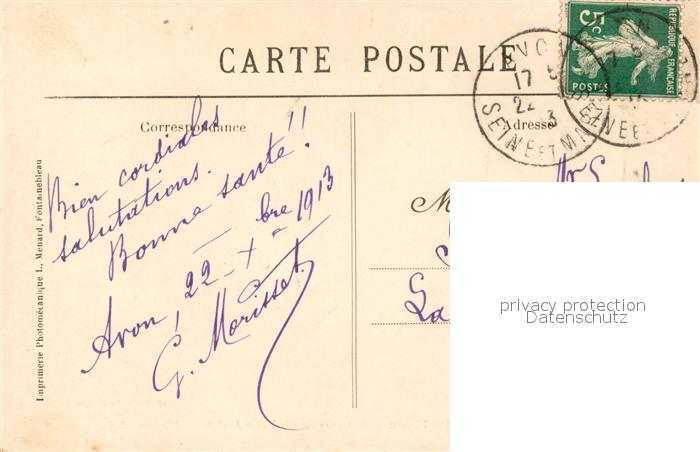 CARTE POSTALE
5c
REPUBLIQUE FRANÇAISE
POSTES
AVON
17
22
3
SEINE ET M
Correspondance
Adresse
Bien cordiales
salutations.
Bonne santé!!
Avon, 22 - Xbre 1913
G. Morisset
M
La
privacy protection
Datenschutz
Imprimerie Photomécanique L. Menard, Fontainebleau